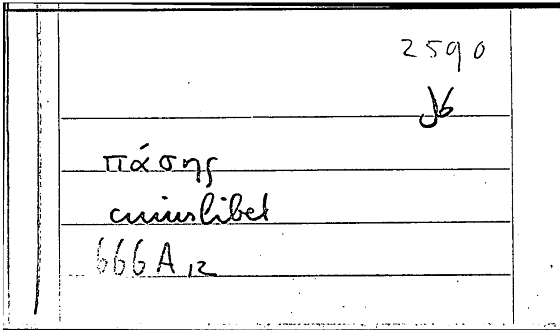 2590
J6
πάσης
cuiuslibet
666A12